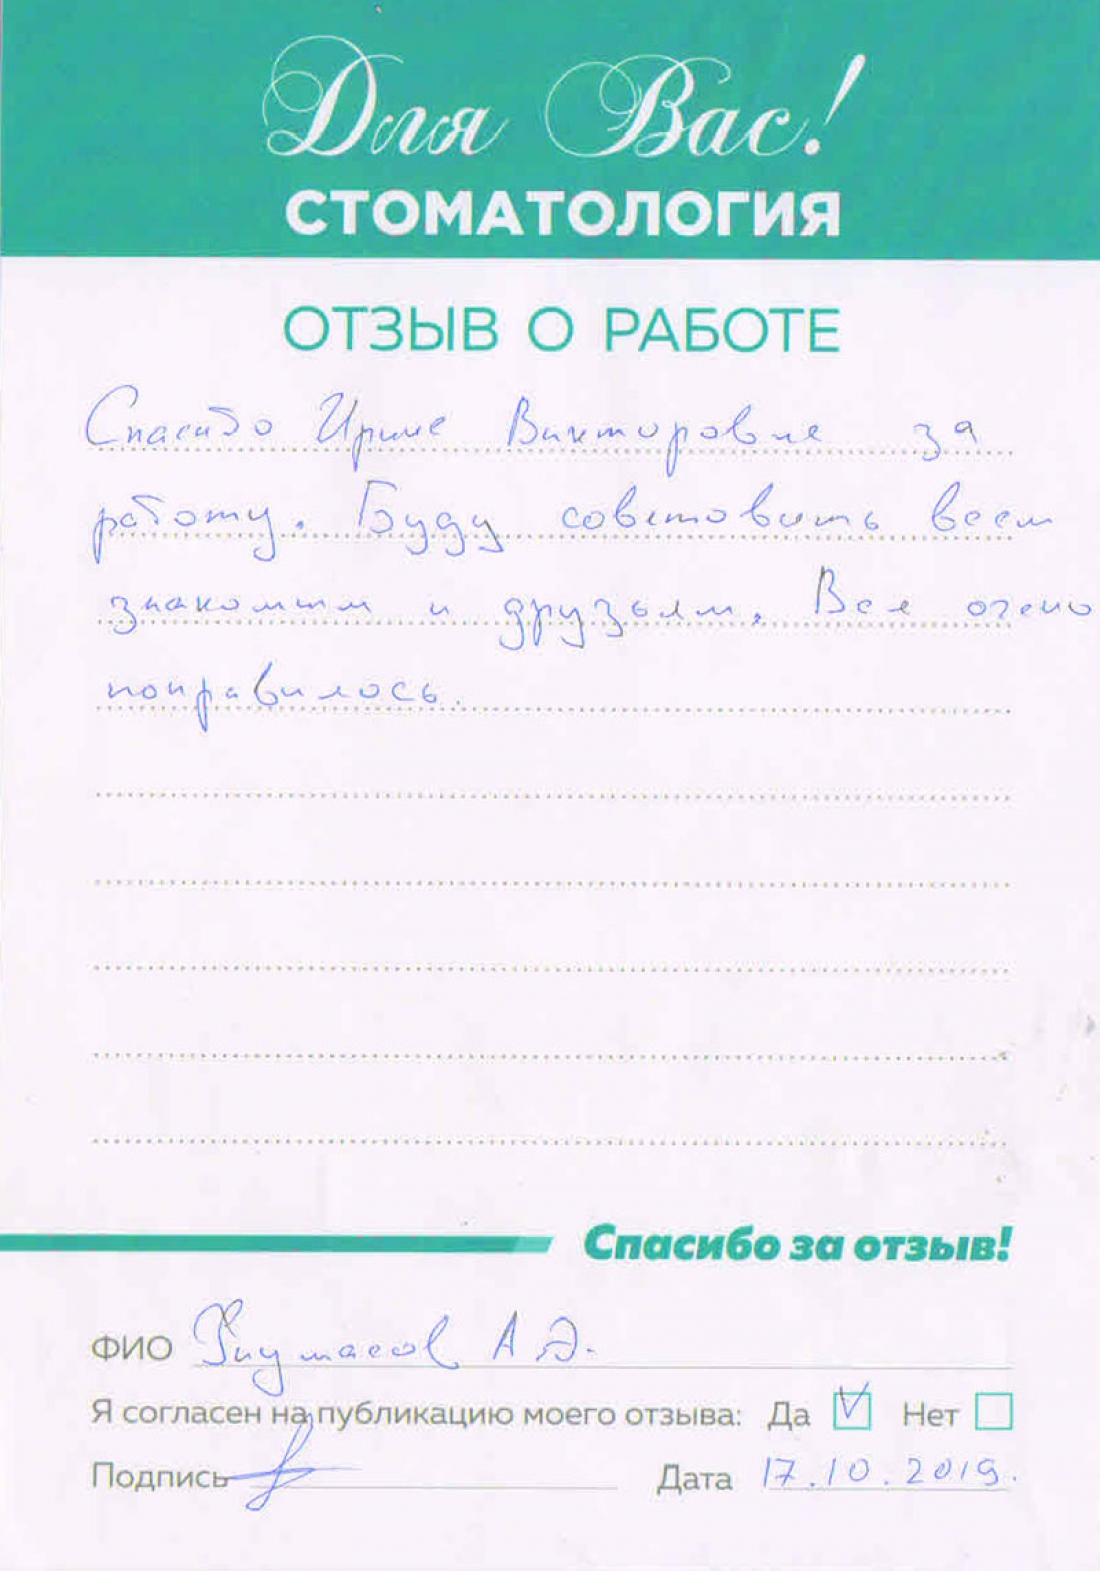 Для Вас!
СТОМАТОЛОГИЯ
ОТЗЫВ О РАБОТЕ
Спасибо Ирине Викторовне за
работу. Буду советовать всем
знакомым и друзьям. Все очень
понравилось.
Спасибо за отзыв!
ФИО А. Э.
Я согласен на публикацию моего отзыва: Да Нет
Подпись Дата 17.10.2019.